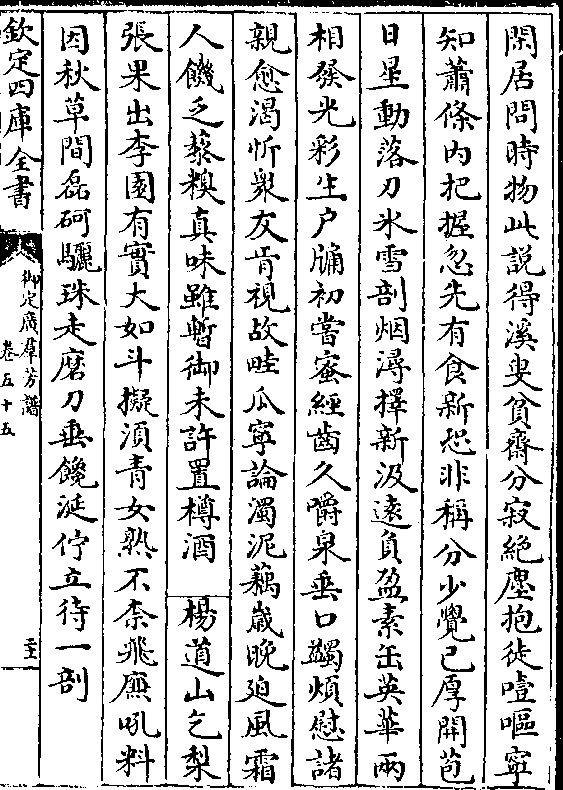 閑居問時物此説得溪叟貧齋分寂絶塵抱徒噎嘔寧
知蕭條内把握忽先有食新恐非稱分少覺已厚開苞
日星動落刀氷雪剖烟潯擇新汲逺負盈素缶英華兩
相發光彩生户牖初嘗蜜經齒久嚼泉垂口蠲煩慰諸
親愈渴忻衆友肯視故畦瓜寧論濁泥藕嵗晚廹風霜
人饑乏藜糗真味雖暫御未許置樽酒 楊道山乞梨
張果出李園有實大如斗擬須青女熟不柰飛廉吼料
因秋草間磊砢驪珠走磨刀垂饞涎佇立待一剖
欽定四庫全書
御定廣羣芳譜
卷五十五
二十一